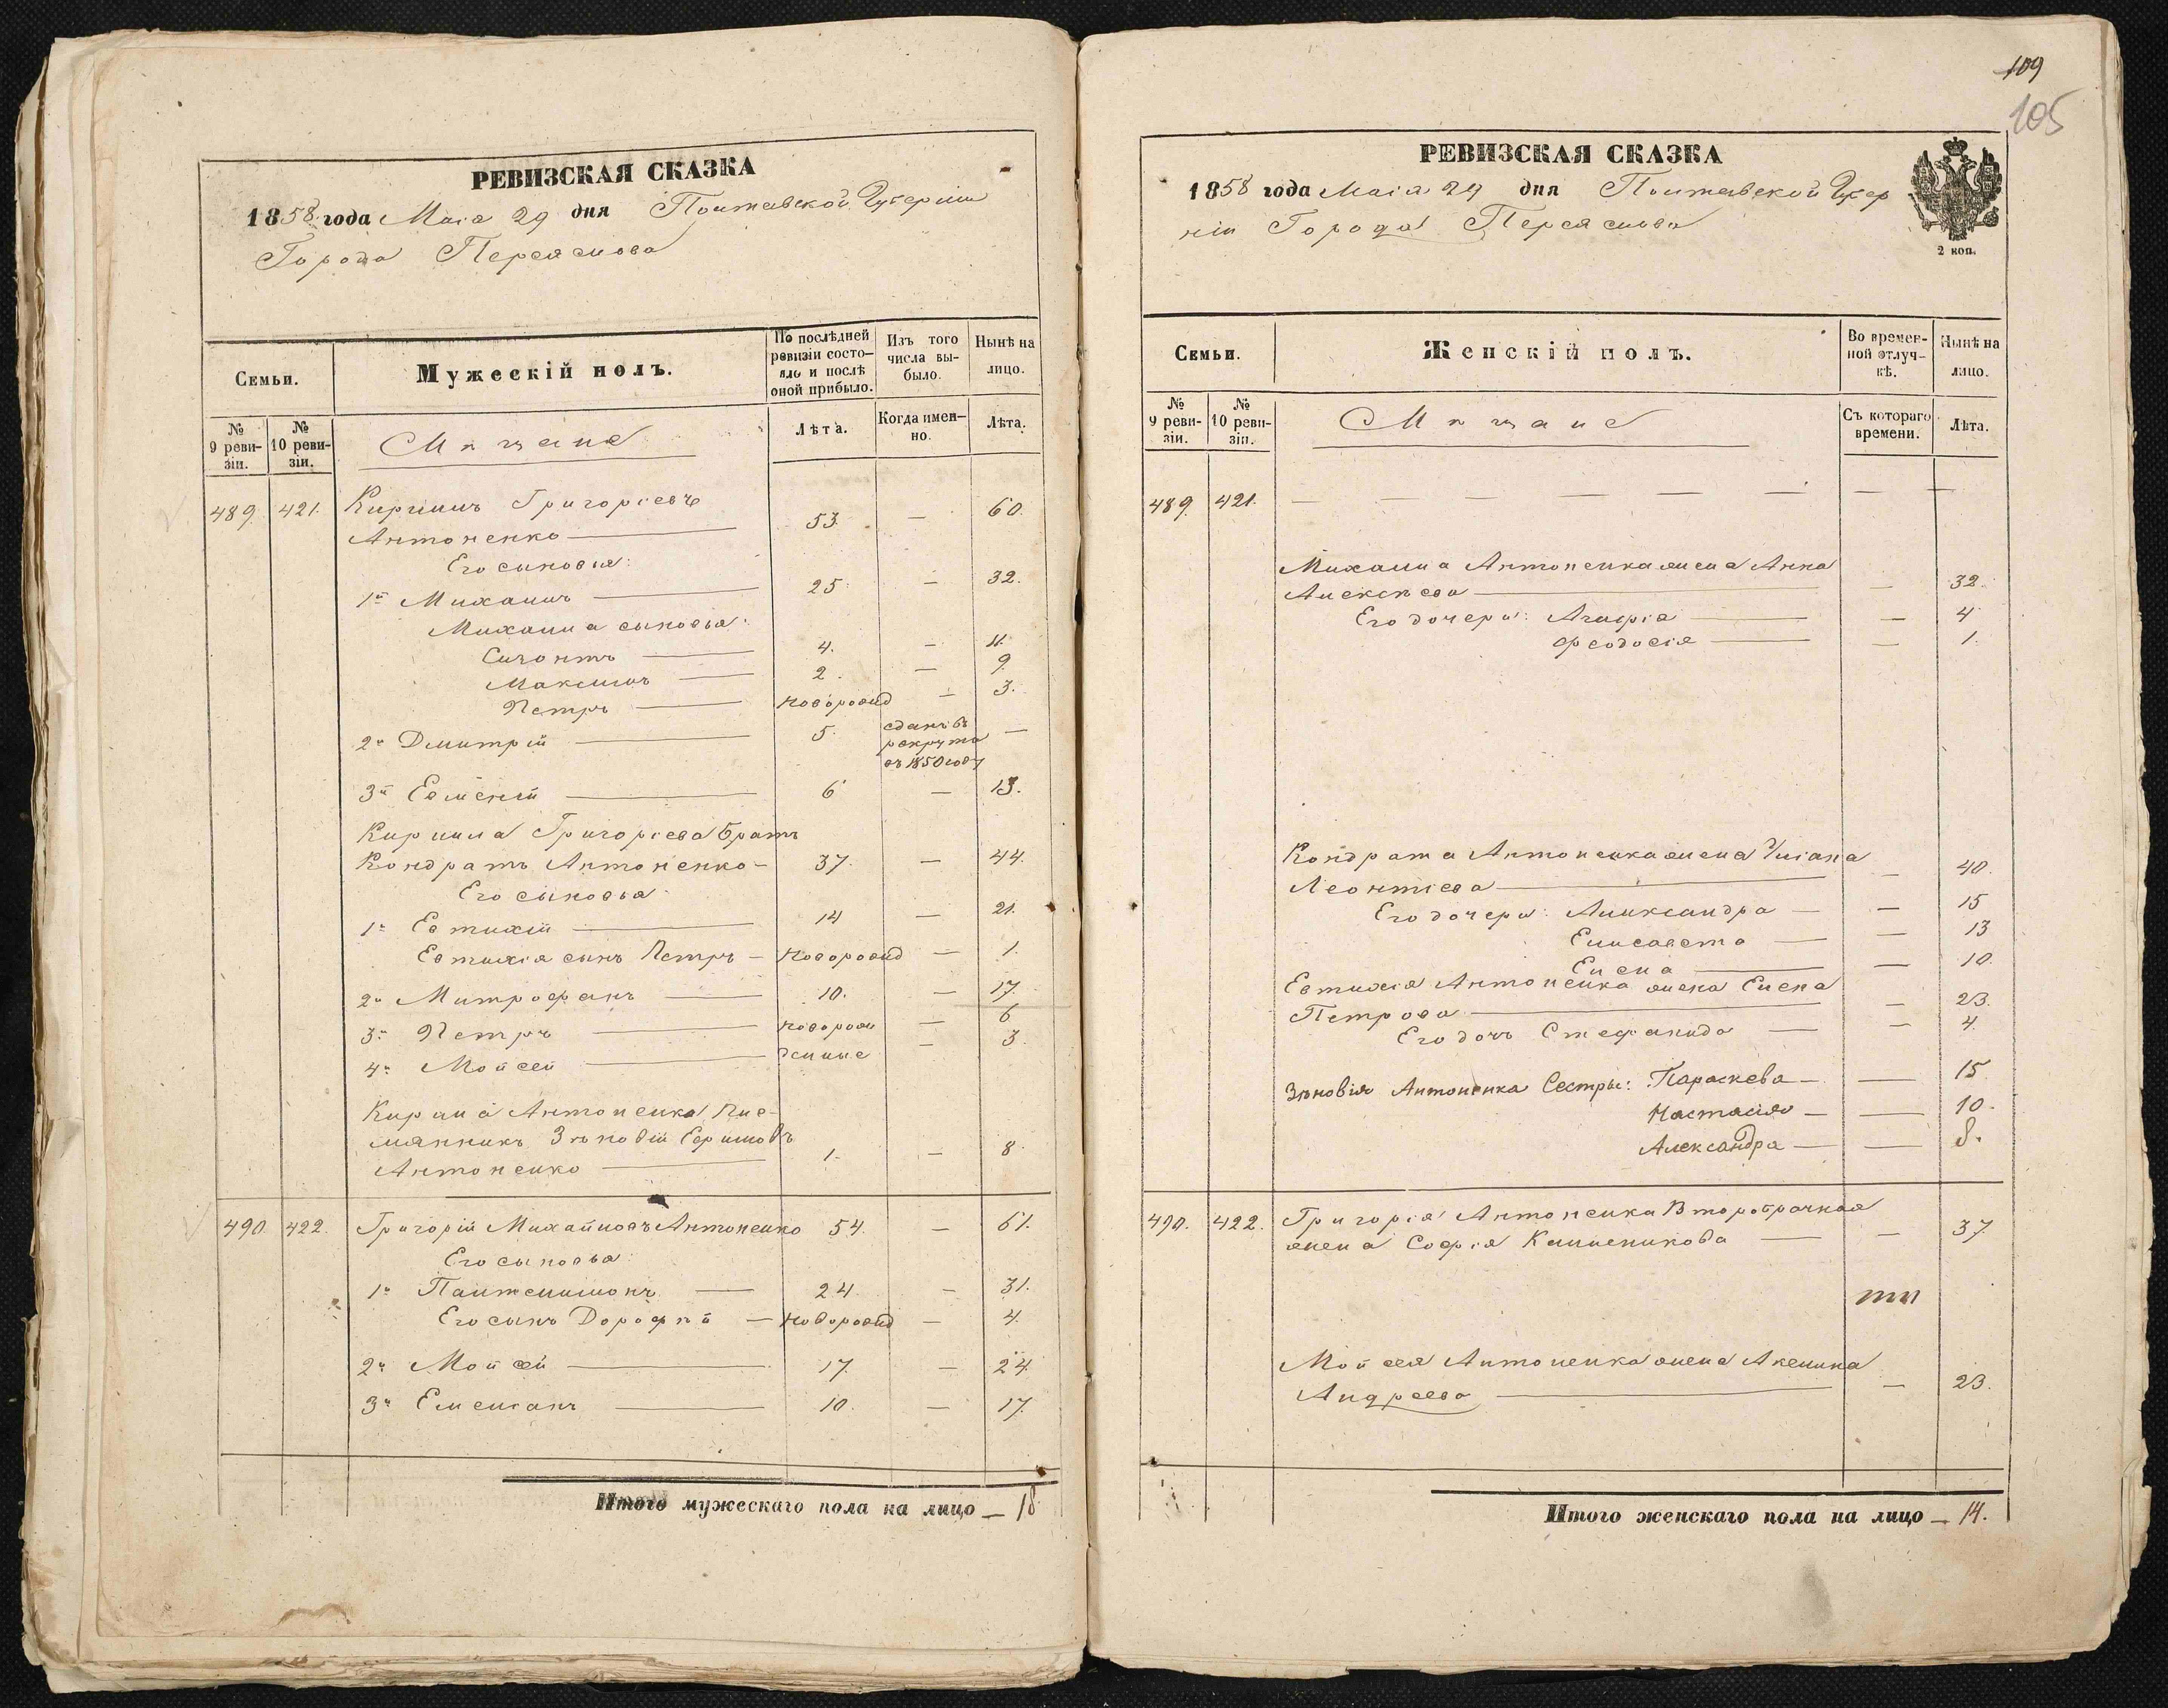 РЕВИЗСКАЯ СКАЗКА
1858 года Маія 29 дня Полтавской Губерніи
Города Переяслова
Семьи.
Мужескій полъ.
По послѣдней ревизіи состояло и послѣ оной прибыло.
Изъ того числа выбыло.
Нынѣ на лицо.
№ 9 ревизіи.
№ 10 ревизіи.
Мѣщане
Лѣта.
Когда именно.
Лѣта.
489. 421. Кирилъ Григоріевъ
Антоненко — 53. — 60.
Его сыновья:
1й Михаилъ — 25 — 32.
Михаила сыновья:
— 4. — 11.
Максимъ — 2. — 9.
Петръ — новорожд — 3.
2й Дмитрій — 5. сданъ въ рекруты въ 1850 году —
3й Евменій — 6 — 13.
Кирила Григоріева братъ
Кондратъ Антоненко — 37. — 44.
Его сыновья
1й Евтихій — 14 — 21.
Евтихія сынъ Петръ — новорожд — 1.
2й Митрофанъ — 10. — 17.
3й Петръ — новорож — 6
4й Мойсей — денные — 3.
Кирила Антоненка пле-
мянникъ Зѣновій Ефимовъ
Антоненко — 1. — 8.
490. 422. Григорій Михайловъ Антоненко 54. — 61.
Его сыновья:
1й Пантелимонъ — 24 — 31.
Его сынъ Дорофѣй — новорожд — 4.
2й Мойсей — 17. — 24.
3й Емеліанъ — 10. — 17.
Итого мужескаго пола на лицо — 18
109
105
РЕВИЗСКАЯ СКАЗКА
1858 года Маія 29 дня Полтавской Губер
ніи Города Переяслова
2 коп.
Семьи.
Женскій полъ.
Во временной отлучкѣ.
Нынѣ на лицо.
№ 9 ревизіи.
№ 10 ревизіи.
Мѣщане
Съ котораго времени.
Лѣта.
489. 421. — — — — — — — —
Михаила Антоненка жена Анна
Алексѣева — — 32.
Его дочери: Агафія — — 4
Феодосія — — 1.
Кондрата Антоненка жена Уліана
Леонтіева — — 40.
Его дочери: Александра — — 15
Елисавета — — 13
Елена — — 10.
Евтихія Антоненка жена Елена
Петрова — — 23.
Его дочь Стефанида — — 4.
Зѣновія Антоненка Сестры: Параскева — — 15
Настасія — — 10.
Александра — — 8.
490. 422. Григорія Антоненка Второбрачная
жена Софія — — 37.
Мойсея Антоненка жена Акелина
Андреева — — 23.
Итого женскаго пола на лицо — 14.